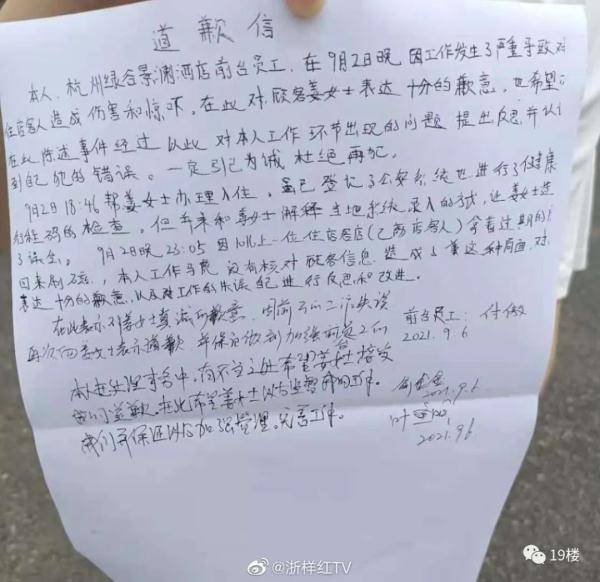 道歉信
本人,杭州绿谷景澜酒店前台员工,在9月2日晚因工作发生了严重导致对
住店客人造成伤害和惊吓,在此对顾客姜女士表达十分的歉意,也希望
在此陈述事件经过以此对本人工作环节出现的问题提出反思并认
到自己犯的错误。一定引已为诫杜绝再犯。
9月2日18:46帮姜女士办理入住,虽已登记了公安系统也进行了健康
码的检查,但并未和姜女士解释当地系统录入的方式,让姜女士造
了误会。9月2日晚23:05因1011上一位住店客(已离店客人)拿着过期的
回来刷不开,本人工作当晚没有核对顾客信息造成了姜这种局面,对
表达十分的歉意,以及对工作的失误已进行反思和改进。
在此表示对姜女士真诚的歉意,因前台的工作失误
再次向姜女士表示道歉,并保证做到加强前台工作
前台员工:付傲
2021.9.6
本店处理事务中,有不当之处希望姜女士接受
我们道歉,在此希望姜女士以后监督我们工作。
我们并保证以后加强管理。完善工作。
2021.9.6
2021.9.6
19楼
@浙样红TV